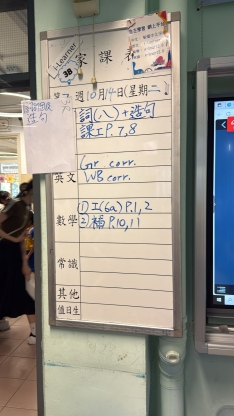 Learner
3B
家課表
第7週10月14日(星期二)
詞(八)+造句
課工P.7,8
造句
英文
Gr corr.
WB corr.
數學
① 工(6a) P.1,2
② 補 P.10,11
常識
其他
值日生